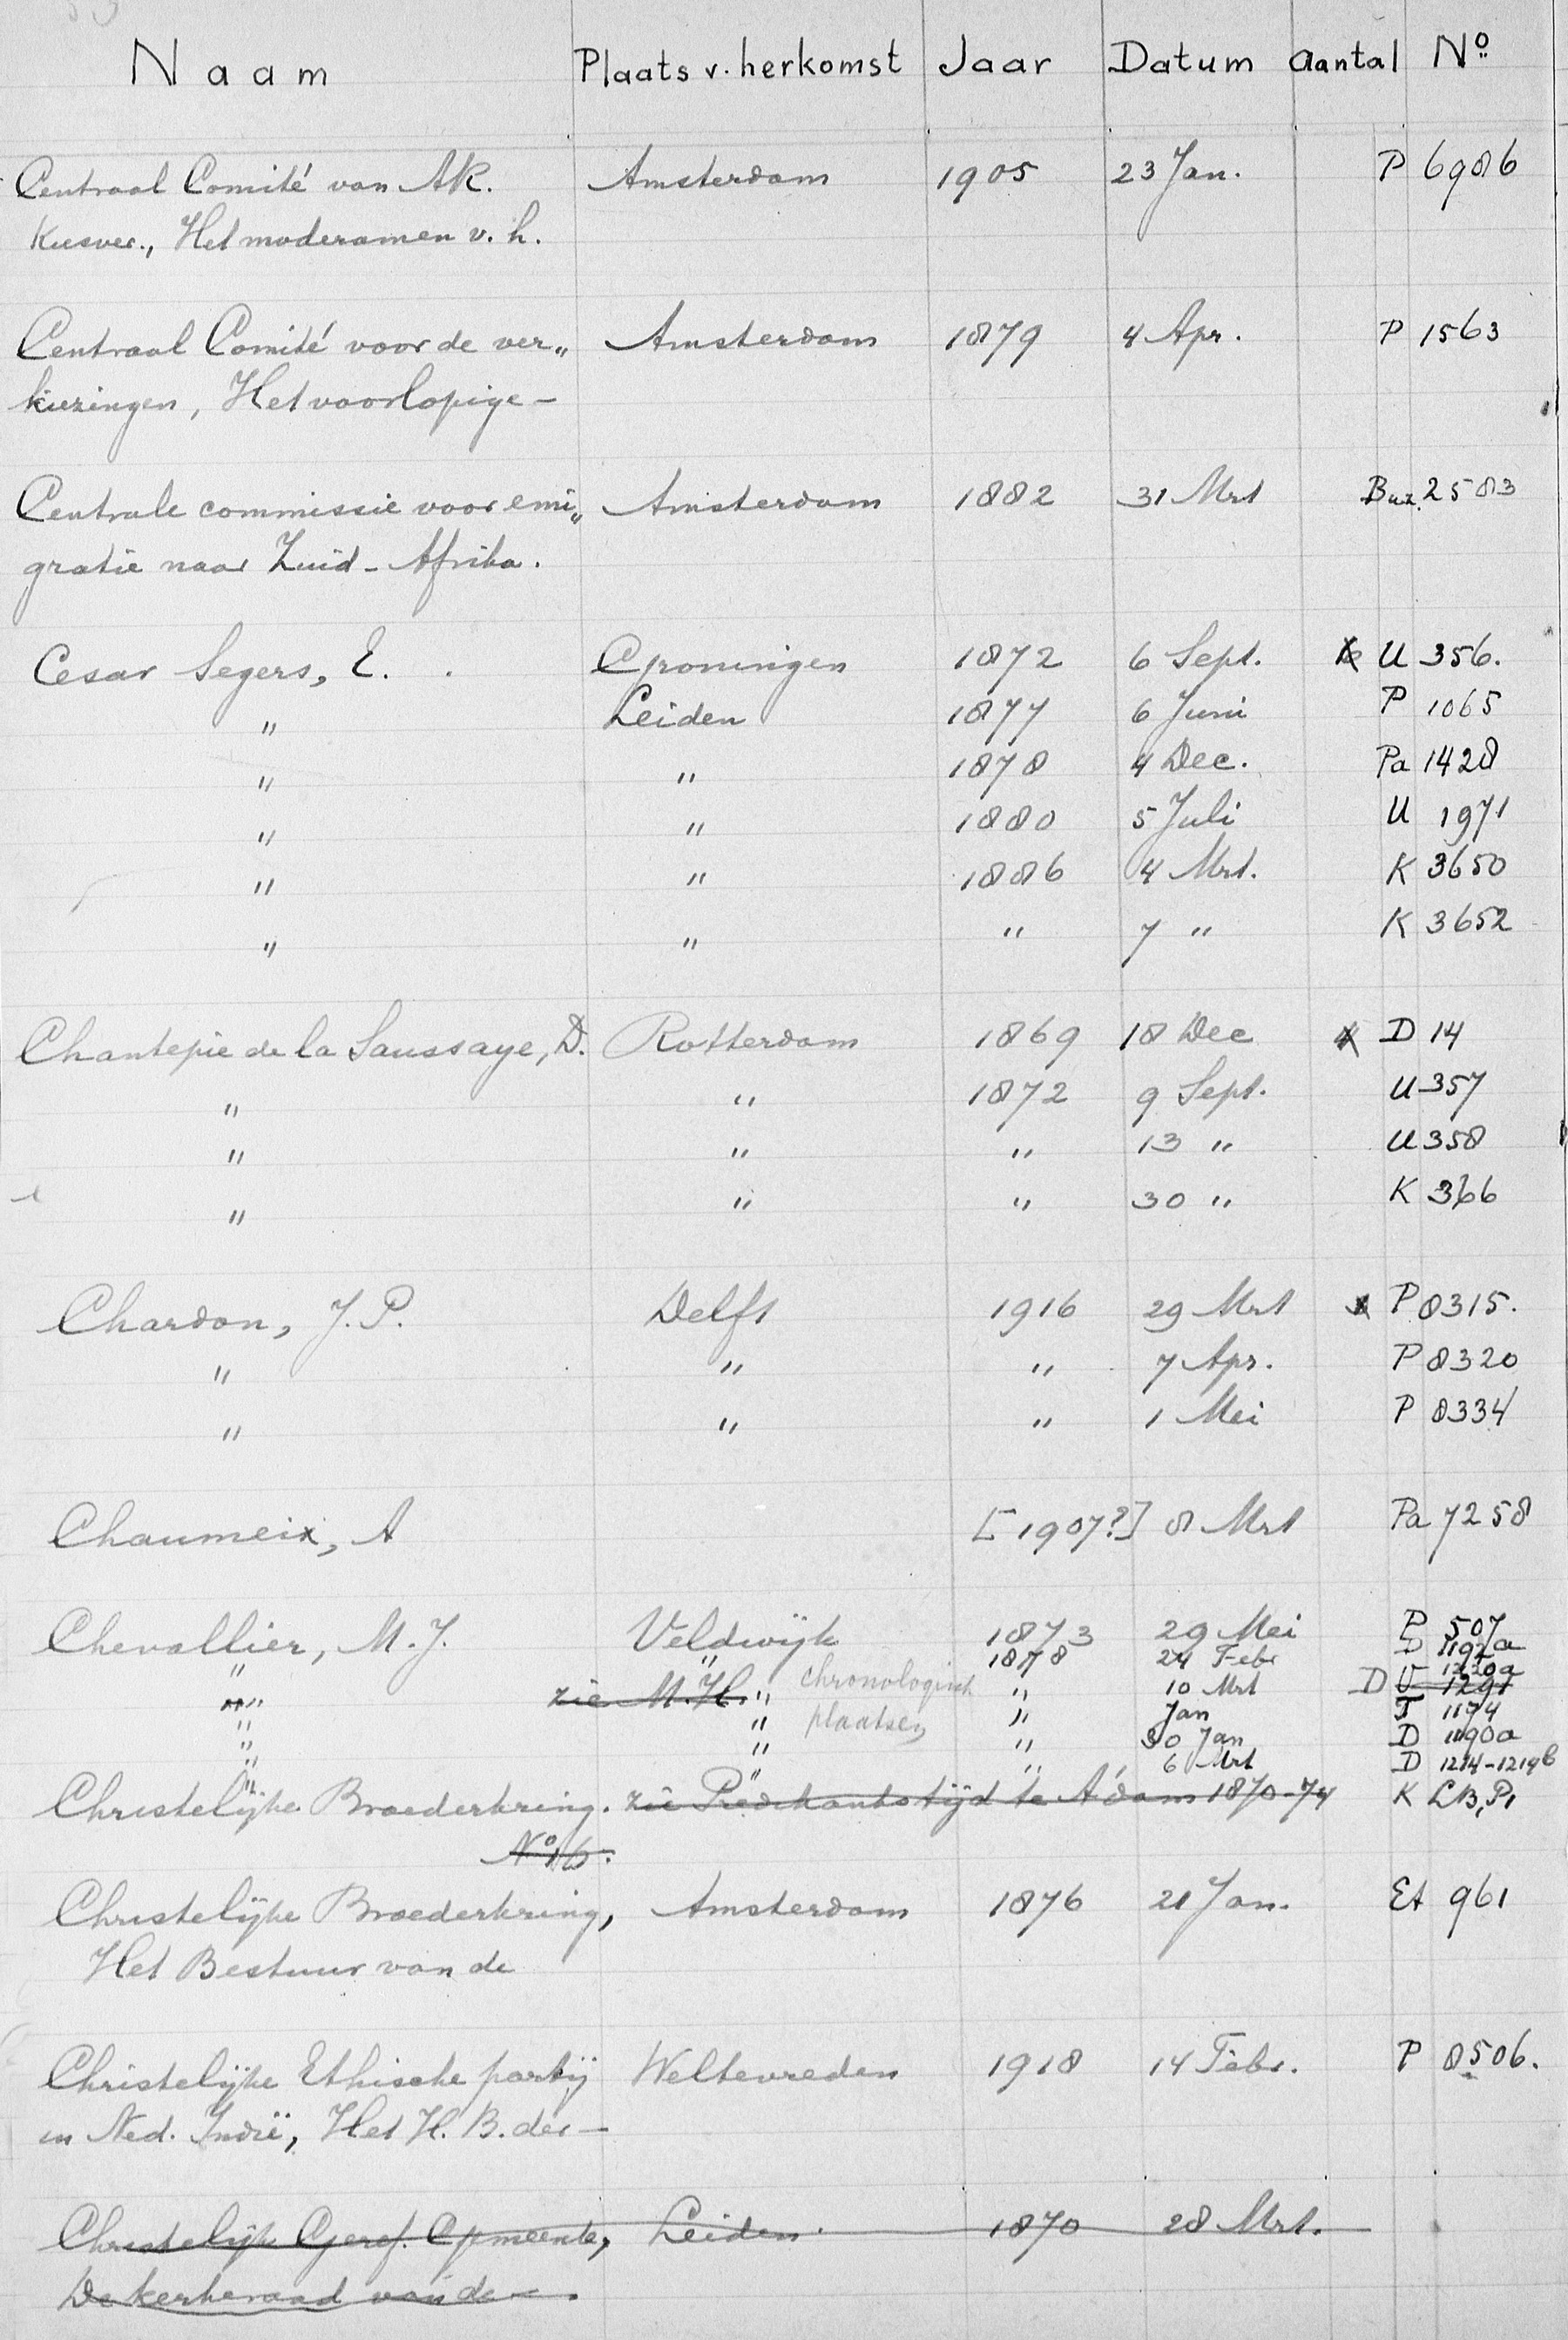 Naam Plaats v. herkomst Jaar Datum Aantal No
Centraal Comité van AR. Amsterdam 1905 23 Jan. P 6986
Kiesver., Het moderamen v. h.
Centraal Comité voor de ver„ Amsterdam 1879 4 Apr. P 1563
kiezingen, Het voorlopige —
Centrale commissie voor emi„ Amsterdam 1882 31 Mrt Buz. 2583
gratie naar Zuid-Afrika.
Cesar Segers, E. Groningen 1872 6 Sept. U 356.
" Leiden 1877 6 Juni P 1065
" " 1878 4 Dec. Pa 1428
" " 1880 5 Juli U 1971
" " 1886 4 Mrt. K 3650
" " " 7 " K 3652
Chantepie de la Saussaye, D. Rotterdam 1869 18 Dec D 14
" " 1872 9 Sept. U 357
" " " 13 " U 358
" " " 30 " K 366
Chardon, J. P. Delft 1916 29 Mrt P 8315.
" " " 7 Apr. P 8320
" " " 1 Mei P 8334
Chaumeix, A [1907?] 8 Mrt Pa 7258
Chevallier, M. J. Veldwijk 1873 29 Mei P 507
" " 1878 24 Febr D 1192a
" zie M. H. " chronologisch " 10 Mrt D 1220a
" " plaatsen " Jan J 1174
" " " 30 Jan D 1190a
" " " 6 Mrt D 1214-1219b
Christelijke Broederkring. zie Predikantstijd te A'dam 1870-74 K LB, P,
No 16.
Christelijke Broederkring, Amsterdam 1876 21 Jan. Et 961
Het Bestuur van de
Christelijke Ethische partij Weltevreden 1918 14 Febr. P 8506.
in Ned. Indië, Het H. B. der —
Christelijk Geref. Gemeente, Leiden. 1870 28 Mrt.
De kerkeraad van de —.